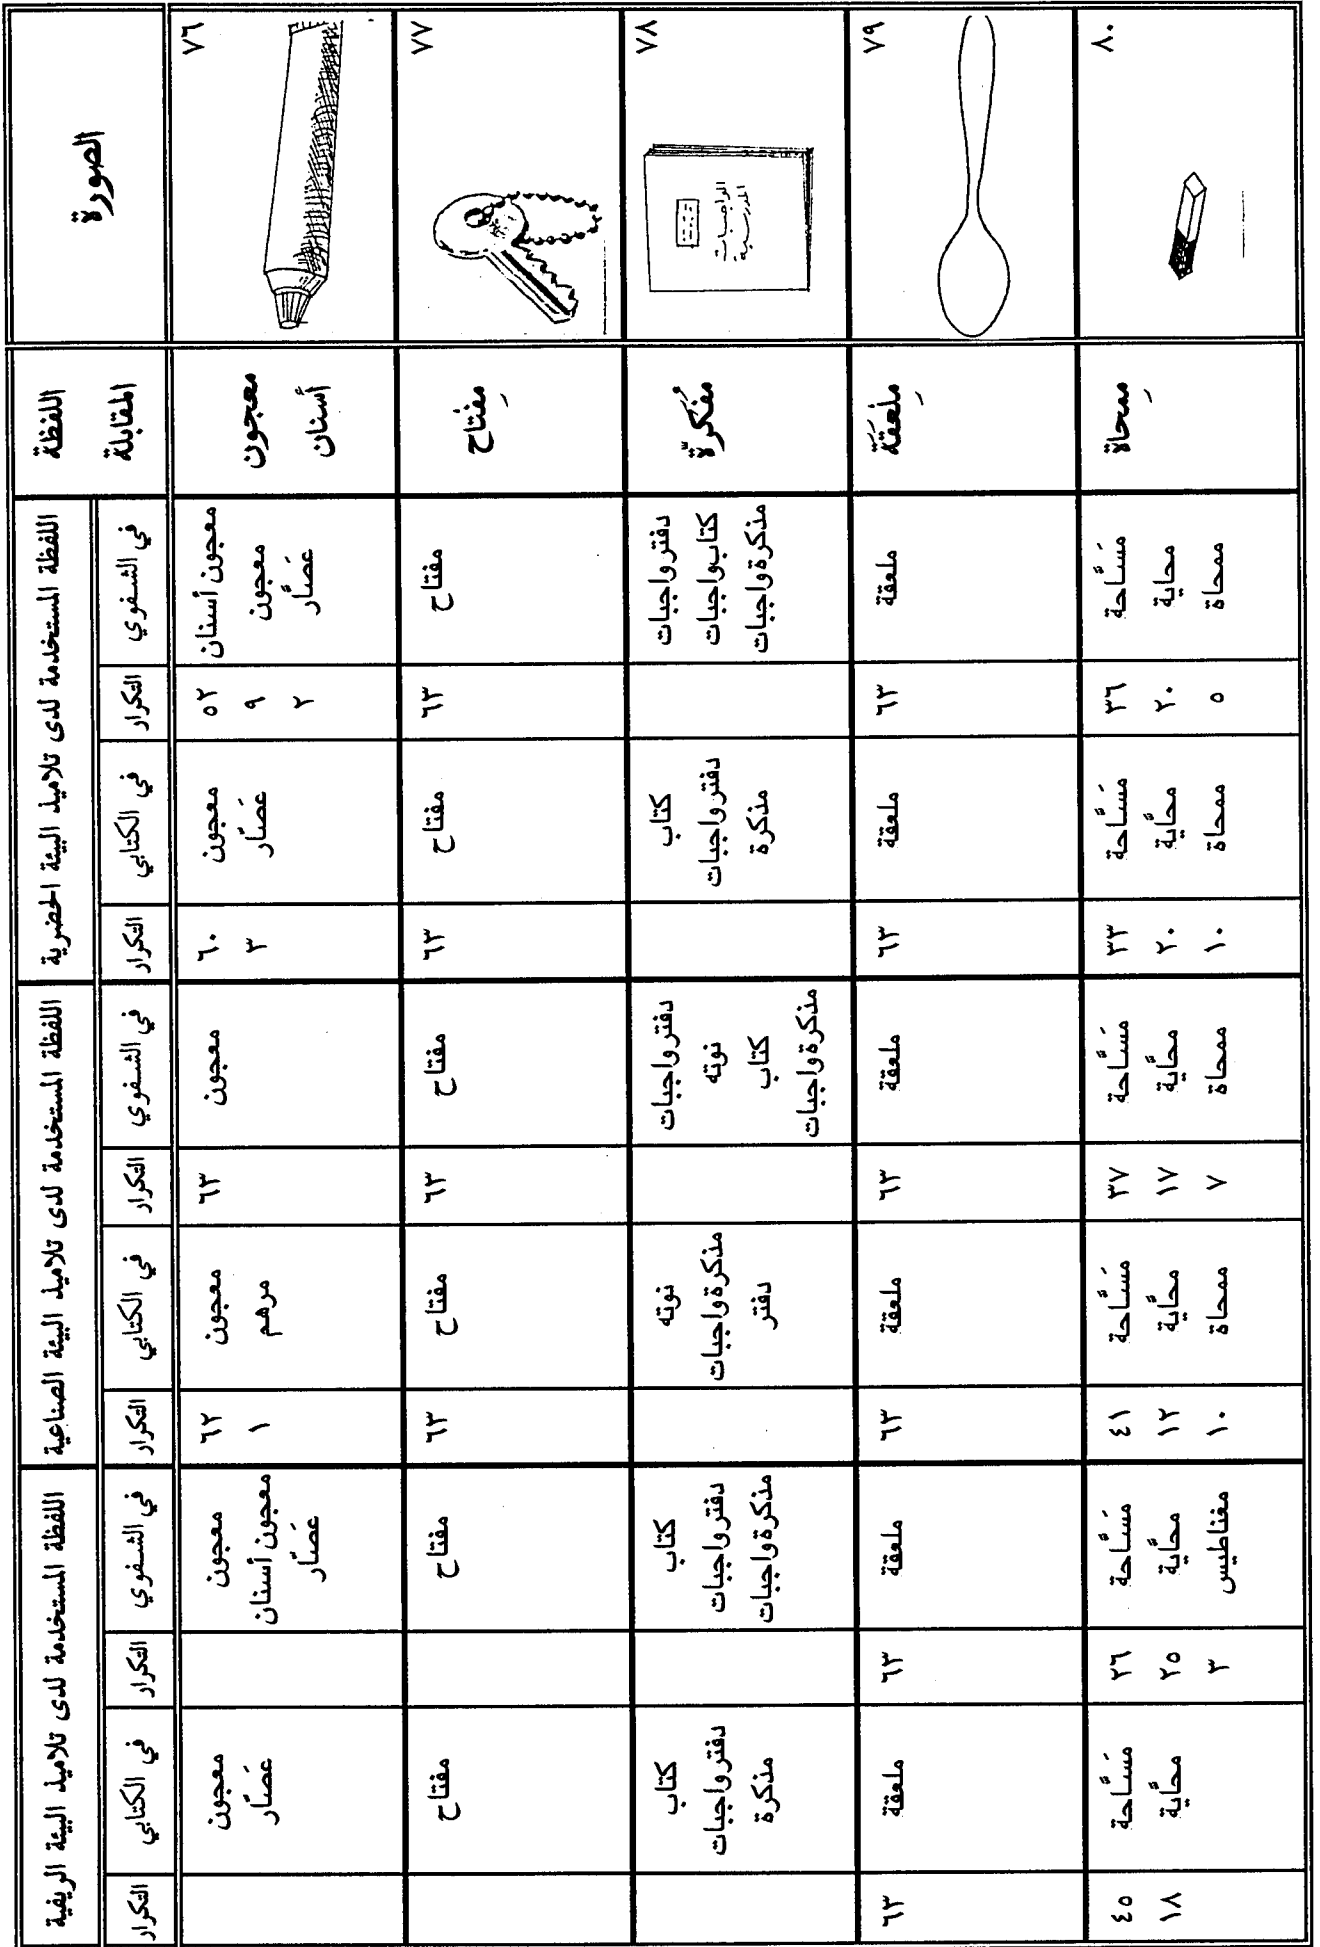 الصورة
اللفظة
المقابلة
اللفظة المستخدمة لدى تلاميذ البيئة الحضرية
اللفظة المستخدمة لدى تلاميذ البيئة الصناعية
اللفظة المستخدمة لدى تلاميذ البيئة الريفية
في الشفوي
التكرار
في الكتابي
التكرار
في الشفوي
التكرار
في الكتابي
التكرار
في الشفوي
التكرار
في الكتابي
التكرار
٧٦
معجون
أسنان
معجون أسنان
معجون
عصَّار
٥٢
٩
٢
معجون
عصَّار
٦٠
٣
معجون
٦٣
معجون
مرهم
٦٢
١
معجون
معجون أسنان
عصَّار
معجون
عصَّار
٧٧
مِفتاح
مفتاح
٦٣
مفتاح
٦٣
مفتاح
٦٣
مفتاح
٦٣
مفتاح
مفتاح
٧٨
الواجبات
المدرسية
مُفكرَّة
دفتر واجبات
كتاب واجبات
مذكرة واجبات
كتاب
دفتر واجبات
مذكرة
دفتر واجبات
نوته
كتاب
مذكرة واجبات
نوته
مذكرة واجبات
دفتر
كتاب
دفتر واجبات
مذكرة واجبات
كتاب
دفتر واجبات
مذكرة
٧٩
مِلعَقَة
ملعقة
٦٣
ملعقة
٦٣
ملعقة
٦٣
ملعقة
٦٣
ملعقة
٦٣
ملعقة
٦٣
٨٠
مِمحاة
مَسَّاحة
محاية
ممحاة
٣٦
٢٠
٥
مَسَّاحة
محَّاية
ممحاة
٣٣
٢٠
١٠
مَسَّاحة
محَّاية
ممحاة
٣٧
١٧
٧
مَسَّاحة
محَّاية
ممحاة
٤١
١٢
١٠
مَسَّاحة
محَّاية
مغناطيس
٢٦
٢٥
٣
مَسَّاحة
محَّاية
٤٥
١٨